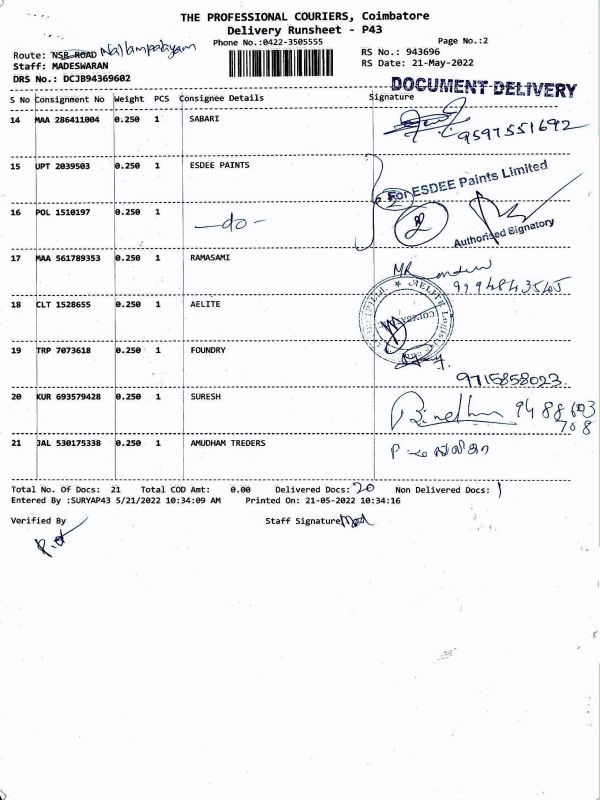 THE PROFESSIONAL COURIERS, Coimbatore
Delivery Runsheet - P43
Phone No.:0422-3505555
Page No.:2
Route: NSR ROAD Nallampalayam
RS No.: 943696
Staff: MADESWARAN
RS Date: 21-May-2022
DRS No.: DCJB94369602
DOCUMENT DELIVERY
S No Consignment No Weight PCS Consignee Details Signature
14 MAA 286411004 0.250 1 SABARI
9597551692
15 UPT 2039503 0.250 1 ESDEE PAINTS
For ESDEE Paints Limited
16 POL 1510197 0.250 1 -do-
2
Authorised Signatory
17 MAA 561789353 0.250 1 RAMASAMI
9994843545
18 CLT 1528655 0.250 1 AELITE
19 TRP 7073618 0.250 1 FOUNDRY
9715858023
20 KUR 693579428 0.250 1 SURESH
9488603
708
21 JAL 530175338 0.250 1 AMUDHAM TREDERS
Total No. Of Docs: 21 Total COD Amt: 0.00 Delivered Docs: 20 Non Delivered Docs: 1
Entered By :SURYAP43 5/21/2022 10:34:09 AM Printed On: 21-05-2022 10:34:16
Verified By
Staff Signature